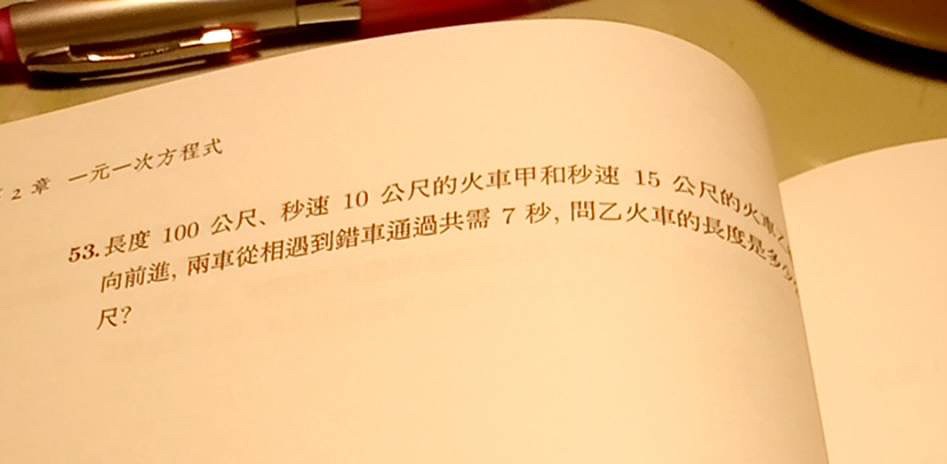 2 章 一元一次方程式
53.長度 100 公尺、秒速 10 公尺的火車甲和秒速 15 公尺的火車乙
向前進, 兩車從相遇到錯車通過共需 7 秒, 問乙火車的長度是多少
尺?